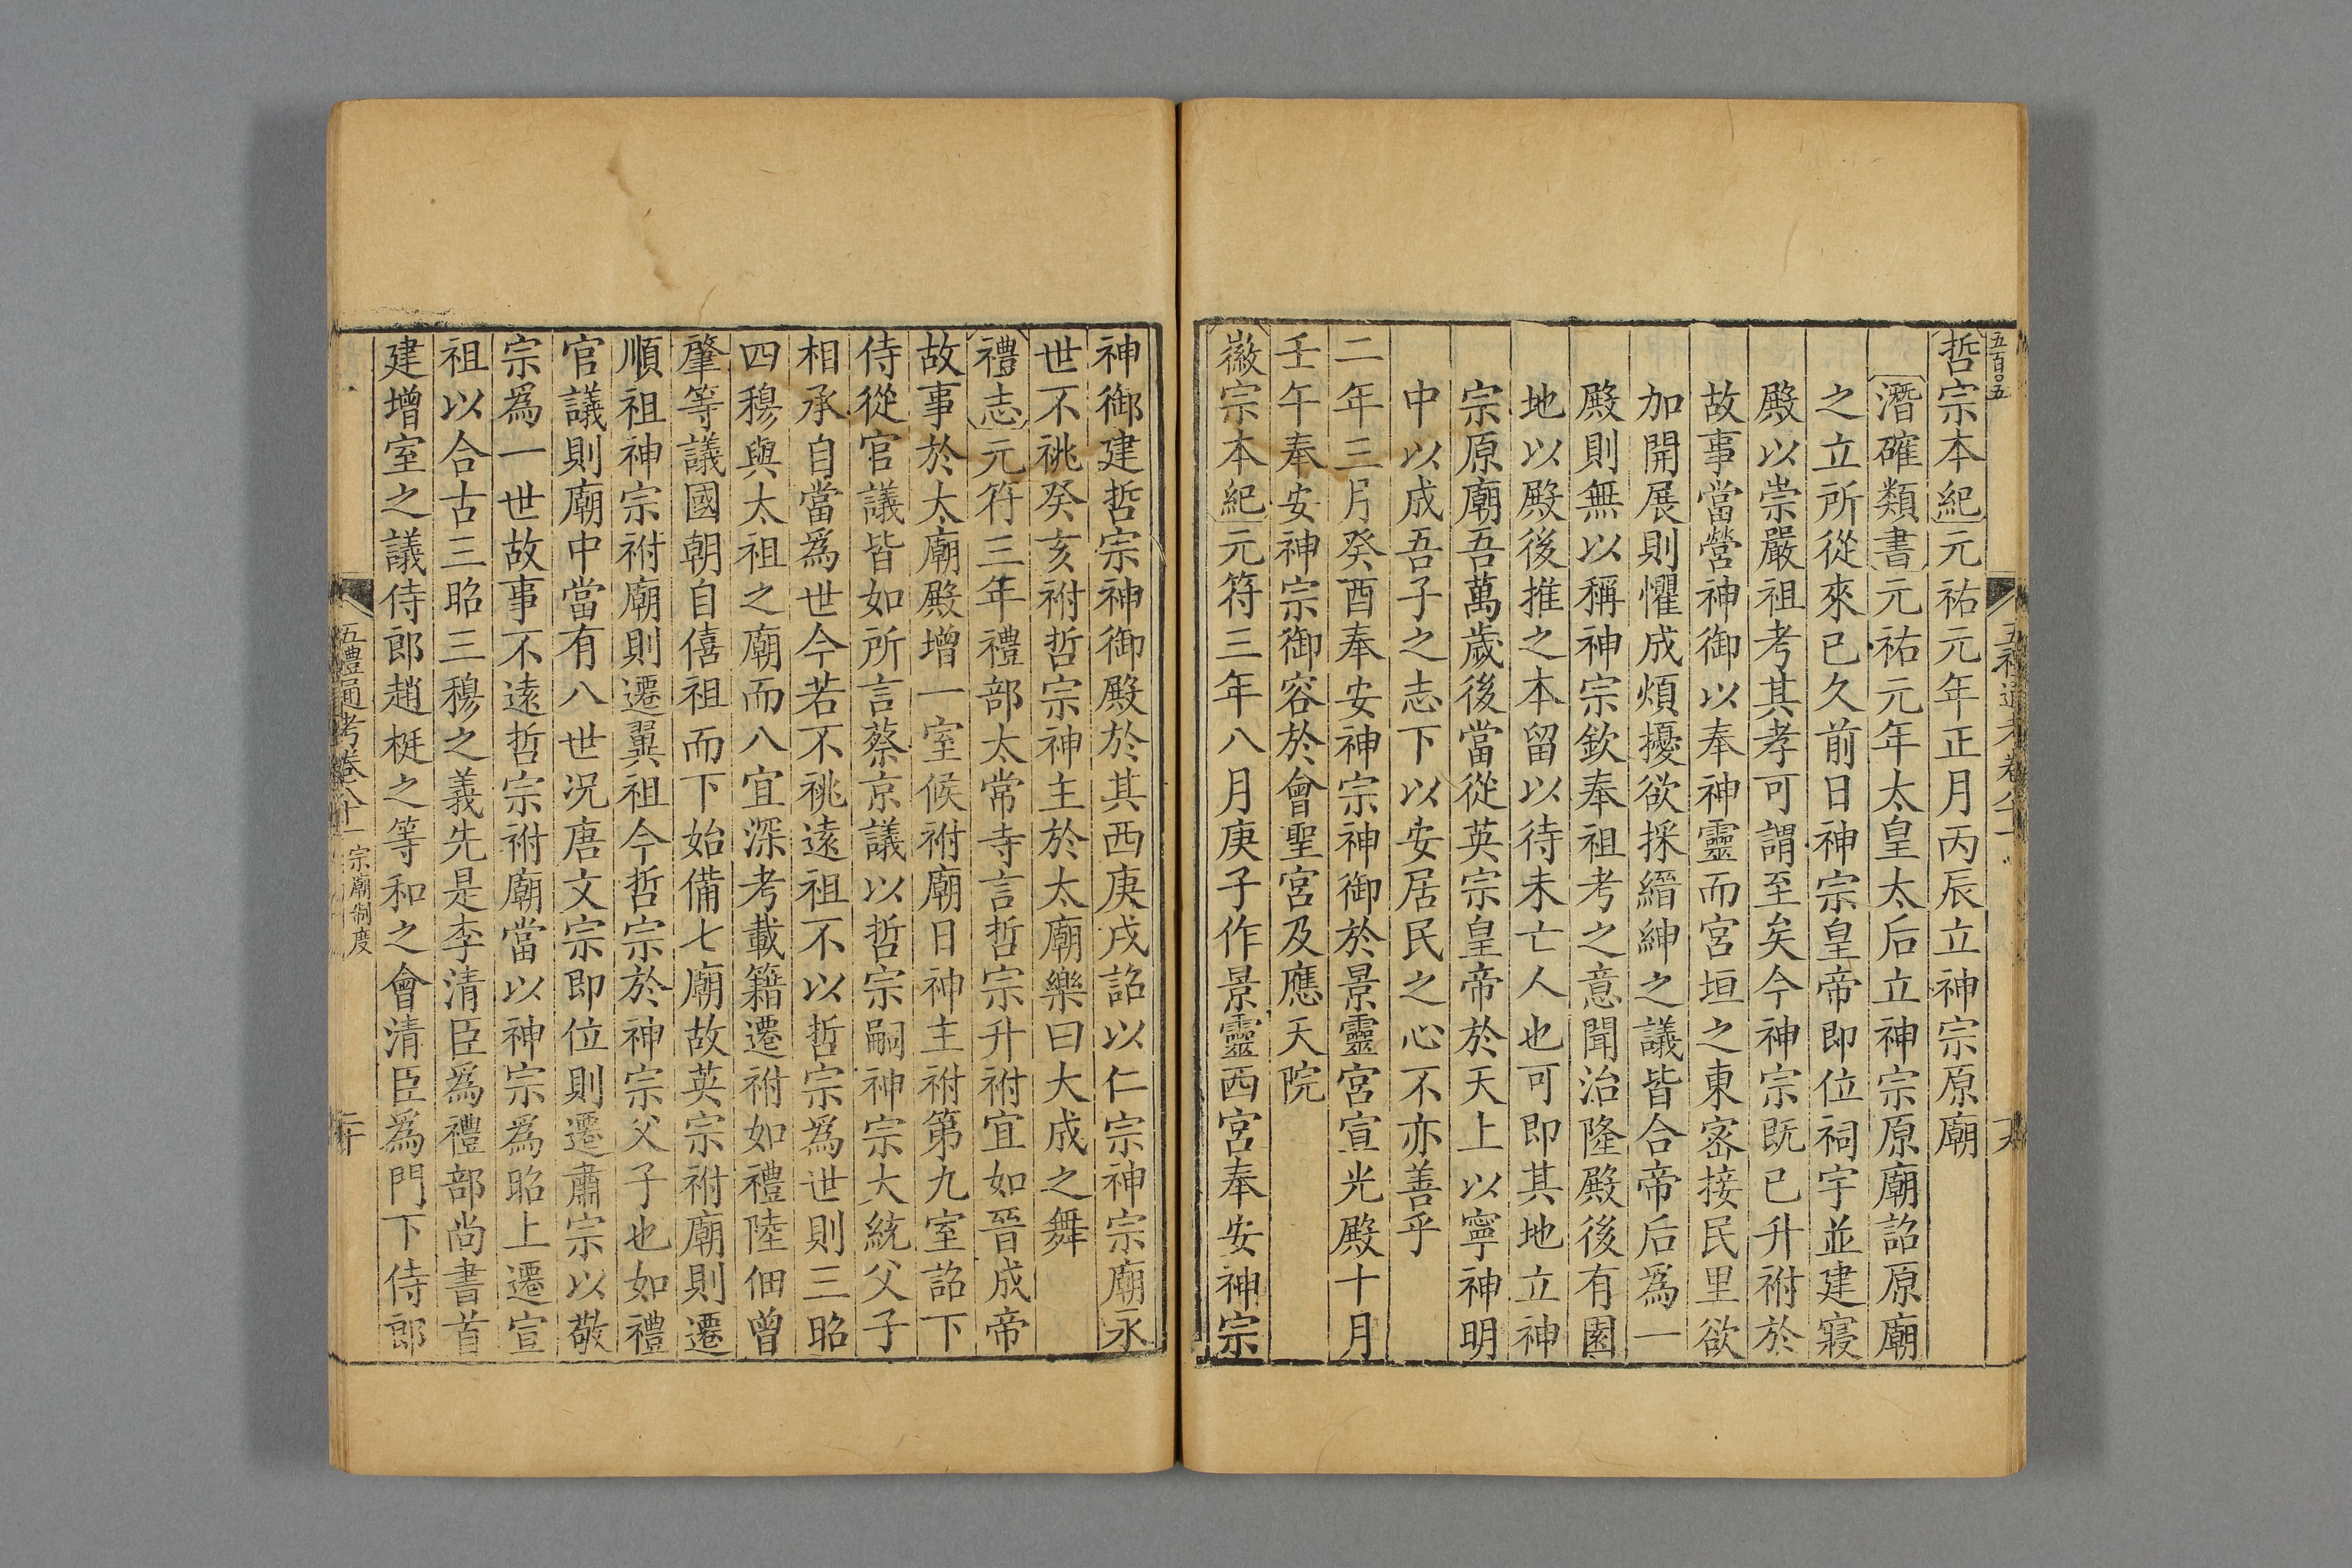 五百〇五
哲宗本紀元祐元年正月丙辰立神宗原廟
潛確類書元祐元年太皇太后立神宗原廟詔原廟
之立所從來已久前日神宗皇帝即位祠宇並建寢
殿以崇嚴祖考其孝可謂至矣今神宗既已升祔於
故事當營神御以奉神靈而宮垣之東宻接民里欲
加開展則懼成煩擾欲採縉紳之議皆合帝后爲一
殿則無以稱神宗欽奉祖考之意聞治隆殿後有園
地以殿後推之本留以待未亡人也可即其地立神
宗原廟吾萬歲後當從英宗皇帝於天上以寧神明
中以成吾子之志下以安居民之心不亦善乎
二年三月癸酉奉安神宗神御於景靈宮宣光殿十月
壬午奉安神宗御容於會聖宮及應天院
徽宗本紀元符三年八月庚子作景靈西宮奉安神宗
神御建哲宗神御殿於其西庚戌詔以仁宗神宗廟永
世不祧癸亥祔哲宗神主於太廟樂曰大成之舞
禮志元符三年禮部太常寺言哲宗升祔宜如晉成帝
故事於太廟殿增一室候祔廟日神主祔第九室詔下
侍從官議皆如所言蔡京議以哲宗嗣神宗大統父子
相承自當爲世今若不祧遠祖不以哲宗爲世則三昭
四穆與太祖之廟而八宜深考載籍遷祔如禮陸佃曾
肇等議國朝自僖祖而下始備七廟故英宗祔廟則遷
順祖神宗祔廟則遷翼祖今哲宗於神宗父子也如禮
官議則廟中當有八世况唐文宗即位則遷肅宗以敬
宗爲一世故事不遠哲宗祔廟當以神宗爲昭上遷宣
祖以合古三昭三穆之義先是李清臣爲禮部尚書首
建增室之議侍郎趙挺之等和之會清臣爲門下侍郎
五禮通考卷八十一 宗廟制度 二十